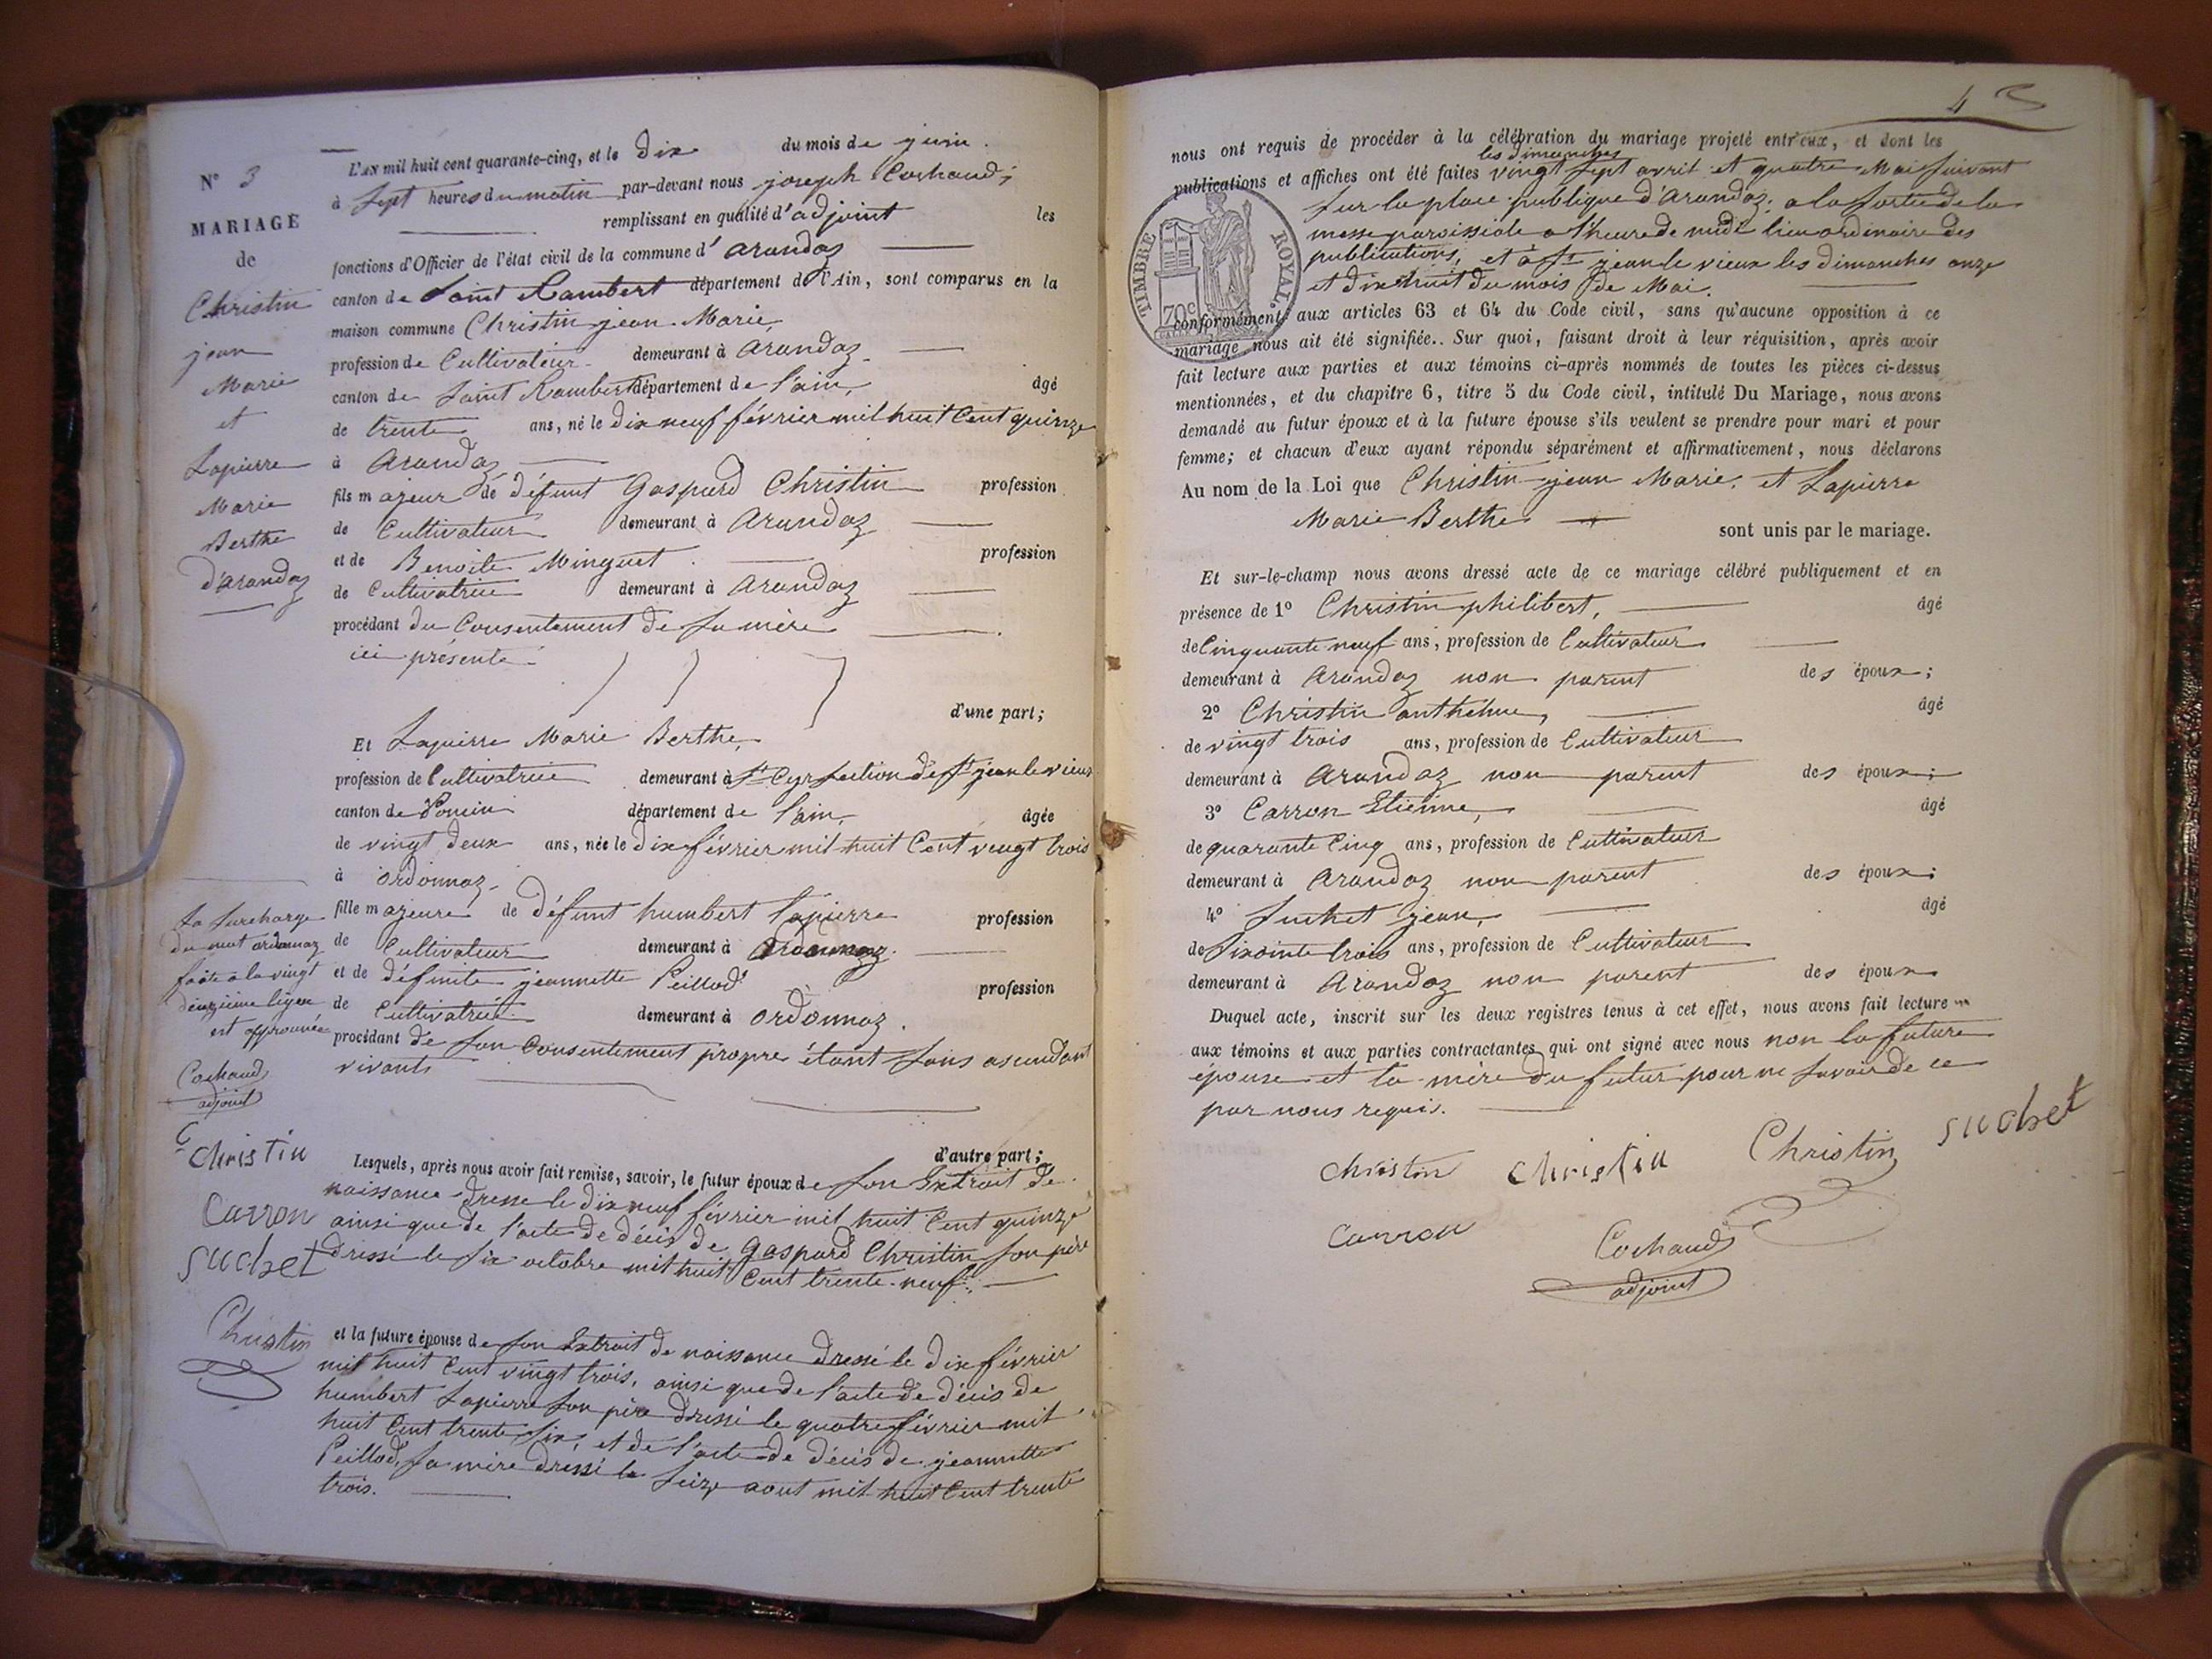 N° 3
MARIAGE
de
Christin
jean
Marie
et
Lapierre
Marie
Berthe
d'arandaz
L'AN mil huit cent quarante-cinq, et le dix du mois de juin.
à sept heures du matin par-devant nous joseph Cochaud,
remplissant en qualité d'adjoint les
fonctions d'Officier de l'état civil de la commune d'arandaz
canton de Saint Rambert département de l'Ain, sont comparus en la
maison commune Christin jean Marie,
profession de Cultivateur demeurant à arandaz
canton de Saint Rambert département de l'ain, âgé
de trente ans, né le dix neuf février mil huit Cent quinze
à arandaz
fils majeur de défunt Gaspard Christin profession
de Cultivateur demeurant à arandaz
et de Benoite Minguet profession
de Cultivatrice demeurant à arandaz
procédant du Consentement de sa mère
ici présente
d'une part;
Et Lapierre Marie Berthe,
profession de Cultivatrice demeurant à St Cyr section de St jean le vieux
canton de Poncin département de l'ain, âgée
de vingt deux ans, née le dix février mil huit Cent vingt trois
à ordonnaz
fille majeure de défunt humbert lapierre profession
de Cultivateur demeurant à ordonnaz
et de défunte jeannette Peillod profession
de Cultivatrice demeurant à ordonnaz.
procédant de son Consentement propre étant sans ascendant
vivants
d'autre part;
la surcharge
du mot ordonnaz
faite à la vingt
deuxième ligne
est approuvée
Cochaud
adjoint
C
Christin
Carron
suchet
Christin
Lesquels, après nous avoir fait remise, savoir, le futur époux de son Extrait de
naissance dressé le dix neuf février mil huit Cent quinze
ainsi que de l'acte de décès de Gaspard Christin son père
dressé le six octobre mil huit Cent trente neuf;
et la future épouse de son Extrait de naissance dressé le dix février
mil huit Cent vingt trois, ainsi que de l'acte de décès de
humbert Lapierre son père dressé le quatre février mil
huit Cent trente six, et de l'acte de décès de jeannette
Peillod, sa mère dressé le seize aout mil huit Cent trente
trois.
4
nous ont requis de procéder à la célébration du mariage projeté entr'eux, et dont les
les dimanches
publications et affiches ont été faites vingt sept avril et quatre Mai suivant
sur la place publique d'arandaz, a la sortie de la
messe paroissiale a l'heure de midi lieu ordinaire des
publications, et à St jean le vieux les dimanches onze
et dix huit du mois de Mai.
TIMBRE ROYAL.
70c
conformément aux articles 63 et 64 du Code civil, sans qu'aucune opposition à ce
mariage nous ait été signifiée. Sur quoi, faisant droit à leur réquisition, après avoir
fait lecture aux parties et aux témoins ci-après nommés de toutes les pièces ci-dessus
mentionnées, et du chapitre 6, titre 5 du Code civil, intitulé Du Mariage, nous avons
demandé au futur époux et à la future épouse s'ils veulent se prendre pour mari et pour
femme; et chacun d'eux ayant répondu séparément et affirmativement, nous déclarons
Au nom de la Loi que Christin jean Marie, et Lapierre
Marie Berthe
sont unis par le mariage.
Et sur-le-champ nous avons dressé acte de ce mariage célébré publiquement et en
présence de 1° Christin philibert, âgé
de Cinquante neuf ans, profession de Cultivateur
demeurant à arandaz non parent des époux;
2° Christin anthelme, âgé
de vingt trois ans, profession de Cultivateur
demeurant à arandaz non parent des époux;
3° Carron Etienne, âgé
de quarante Cinq ans, profession de Cultivateur
demeurant à arandaz non parent des époux;
4° Suchet jean, âgé
de soixante trois ans, profession de Cultivateur
demeurant à arandaz non parent des époux
Duquel acte, inscrit sur les deux registres tenus à cet effet, nous avons fait lecture
aux témoins et aux parties contractantes qui ont signé avec nous non la future
épouse et la mère du futur pour ne savoir de ce
par nous requis.
christin Christin Christin suchet
carron
Cochaud
adjoint